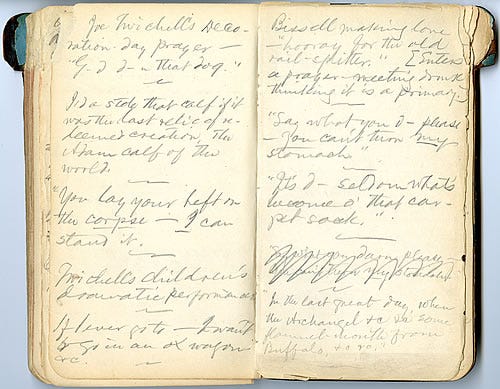 Joe Twichell's Deco-
ration-day prayer —
"G-d d-n that dog."
I'd a stole that calf if it
was the last relic of re-
deemed creation. The
Adam calf of the
world.
"You lay your heft on
the corpse — I can
stand it.
Twichell's children's
dramatic performances
If I ever go to — I want
to go in an ox wagon
&c.
Bissell making love
— "hooray for the old
rail-splitter." [Enters
a prayer-meeting drunk
thinking it is a primary.]
"Say what you d— please
— you can't turn my
stomach."
"It's d— seldom what's
become o' that car-
pet sack."
my stomach
"In the last great day, when
the Archangel &c
from
Buffalo, &c